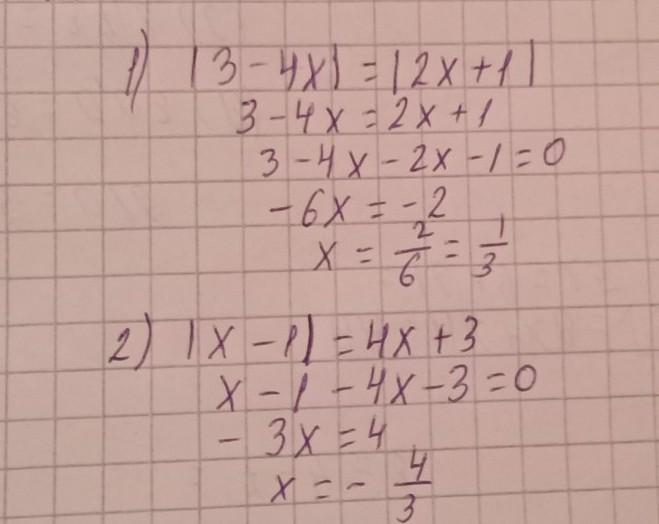 1) |3 - 4x| = |2x + 1|
3 - 4x = 2x + 1
3 - 4x - 2x - 1 = 0
-6x = -2
x = 2/6 = 1/3
2) |x - 1| = 4x + 3
x - 1 - 4x - 3 = 0
- 3x = 4
x = - 4/3